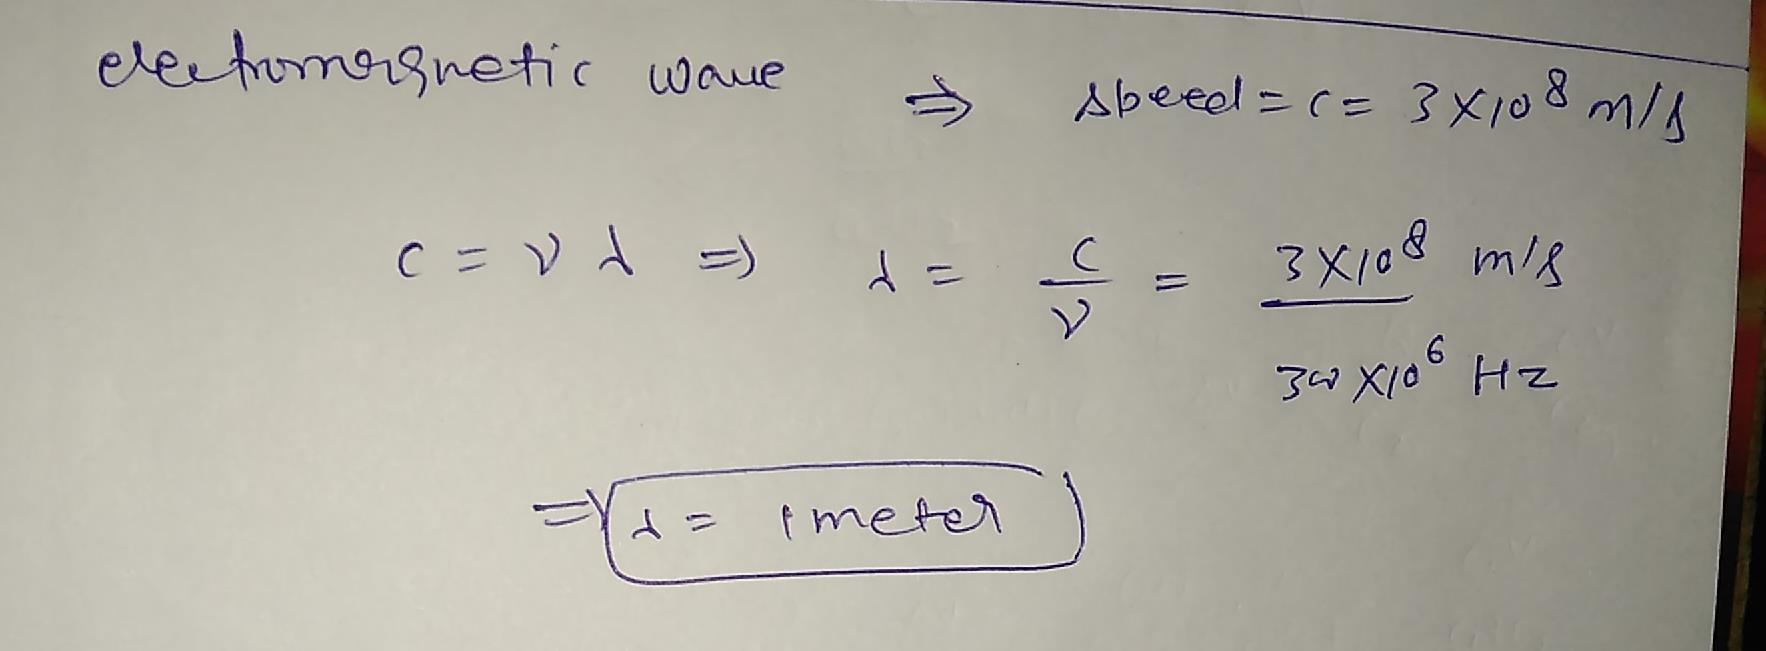 electromagnetic wave ⇒ speed = c = 3 × 10⁸ m/s
c = ν λ ⇒ λ = c/ν = 3 × 10⁸ m/s / 300 × 10⁶ Hz
⇒ λ = 1 meter